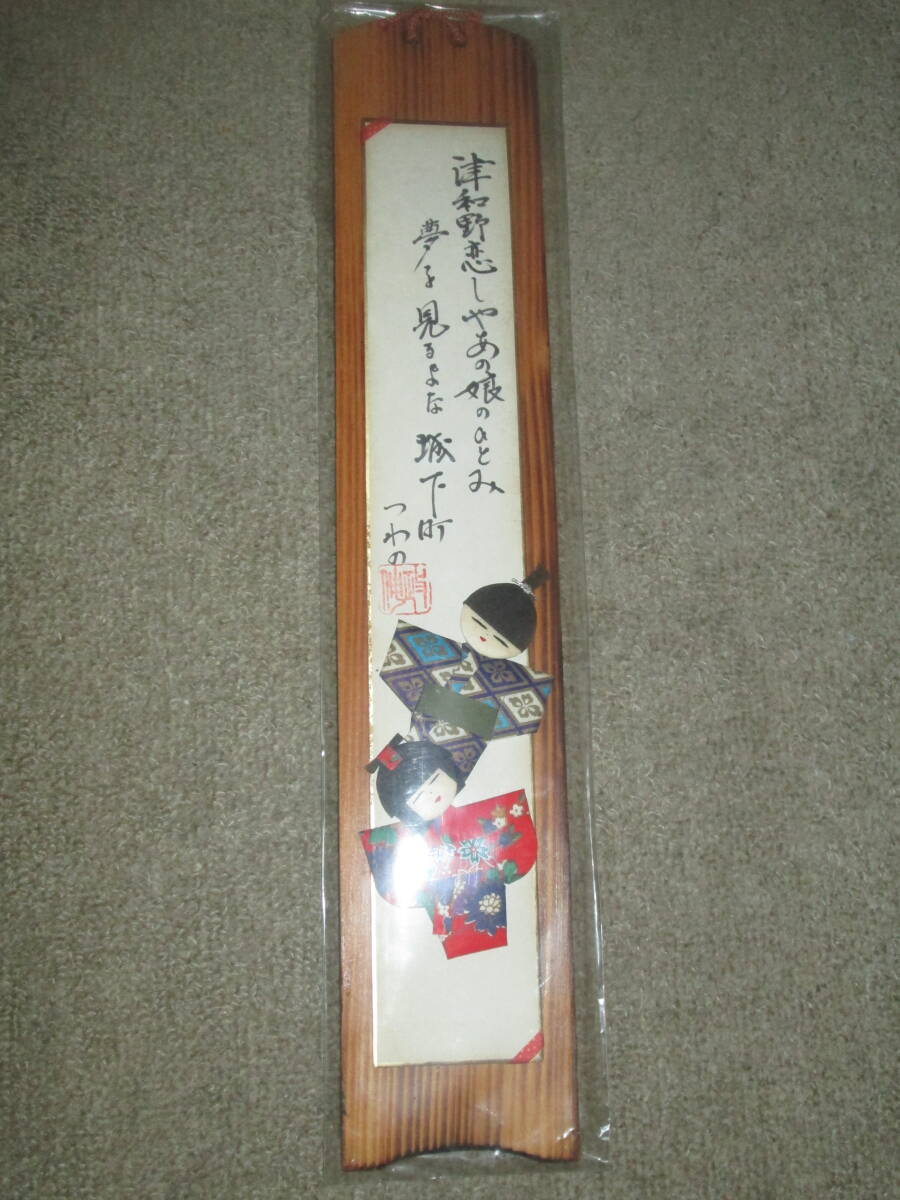 津和野恋しやあの娘のひとみ
夢を見るよな城下町
つわの